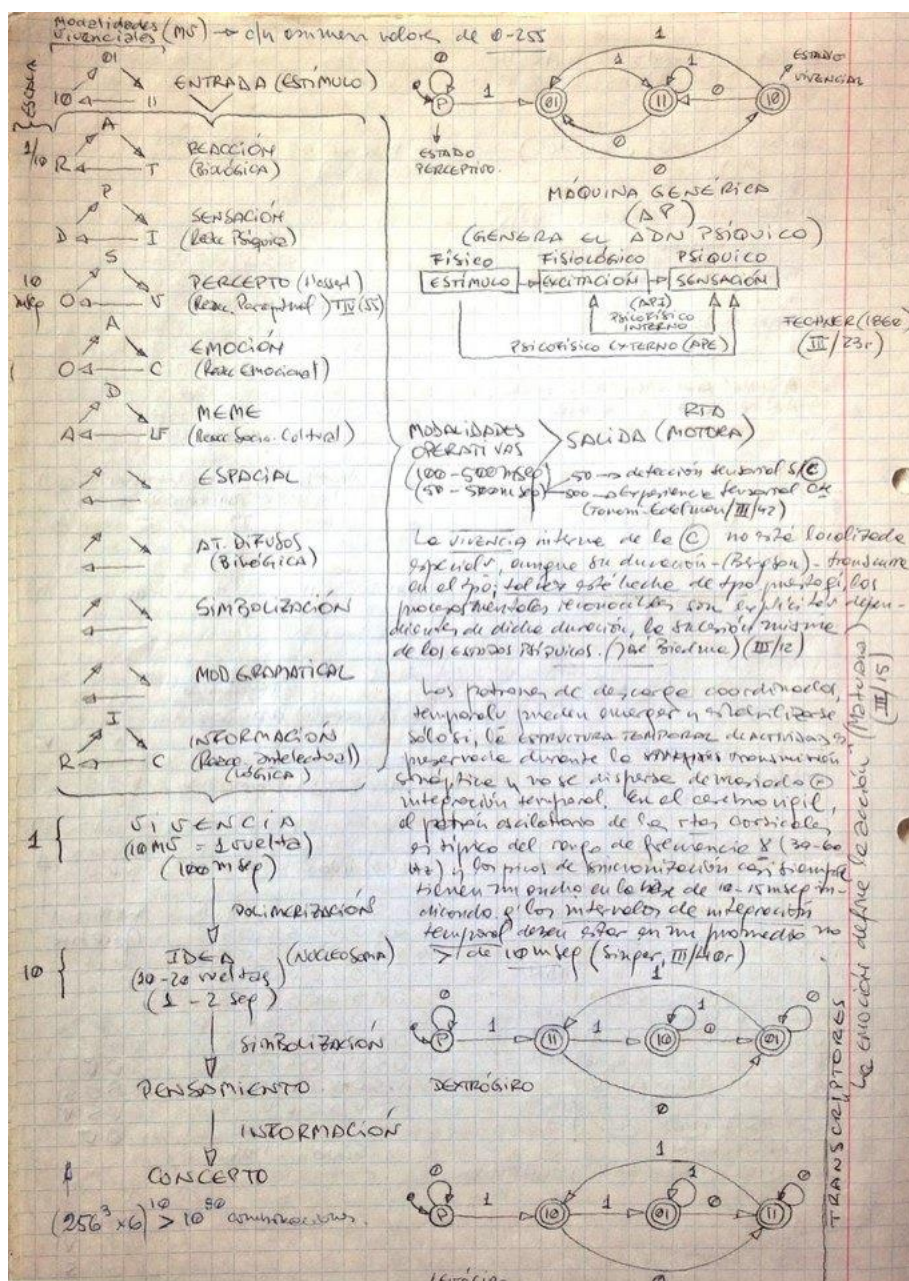 Modalidades
Vivenciales (MV) → c/u
valores de 0-255
ESCALA
01
10
11
ENTRADA (ESTÍMULO)
1/10
A
R
T
REACCIÓN
(Biológica)
P
D
I
SENSACIÓN
(Reacc. Psíquica)
10
mseg
S
O
V
PERCEPTO
TIV (55)
A
O
C
EMOCIÓN
(Reacc. Emocional)
D
A
LF
MEME
(Reacc. Socio-Cultural)
ESPACIAL
AT. DIFUSOS
(BIOLÓGICA)
SIMBOLIZACIÓN
MOD GRAMATICAL
I
R
C
INFORMACIÓN
(Reacc. Intelectual)
(LÓGICA)
1
VIVENCIA
(10 MV = 1 vuelta)
(100 mseg)
POLIMERIZACIÓN
10
IDEA
(NUCLEOSOMA)
(10-20 vueltas)
(1 - 2 seg)
SIMBOLIZACIÓN
PENSAMIENTO
INFORMACIÓN
CONCEPTO
(256³ x6)¹⁰ > 10⁹⁰ combinaciones.
0
1
P
1
01
1
1
11
0
10
0
0
ESTADO
VIVENCIAL
ESTADO
PERCEPTIVO
MÁQUINA GENÉRICA
(AP)
(GENERA EL ADN PSÍQUICO)
Físico
Fisiológico
Psíquico
ESTÍMULO
EXCITACIÓN
SENSACIÓN
(API)
PSICOFÍSICO
INTERNO
PSICOFÍSICO EXTERNO (APE)
FECHNER (1860)
(III/23r)
MODALIDADES
OPERATIVAS
SALIDA
RTA
(MOTORA)
(100-500 mseg)
(50-500 mseg)
50 → detección sensorial S/C
500 → Experiencia sensorial
(Tononi-Edelman/III/42)
La vivencia interna de la C no está localizada
aunque su duración - (Bergson) - transcurre
en el tpo, tal vez esté hecha de tpo puesto q' los
procesos mentales reconocibles son explícitos depen-
dientes de dicha duración, la sucesión misma
de los ESTADOS PSÍQUICOS. (José Biedma) (III/12)
Los patrones de descarga coordinados
pueden emerger y estabilizarse
sólo si, la ESTRUCTURA TEMPORAL DE ACTIVIDAD es
preservada durante la transmisión
sináptica y no se dispersa demasiado
integración temporal. En el cerebro vigil,
el patrón oscilatorio de las rtas corticales
es típico del rango de frecuencia γ (30-60
Hz) y los picos de sincronización casi siempre
tienen un ancho en la base de 10-15 mseg in-
dicando q' los intervalos de integración
temporal deben estar en un promedio no
> de 10 mseg (Singer, III/40r)
0
P
1
11
1
1
10
0
0
01
1
0
DEXTRÓGIRO
0
P
1
10
1
1
01
0
0
11
1
0
TRANSCRIPTORES
"La EMOCIÓN define la acción" (Maturana)
(III/15)